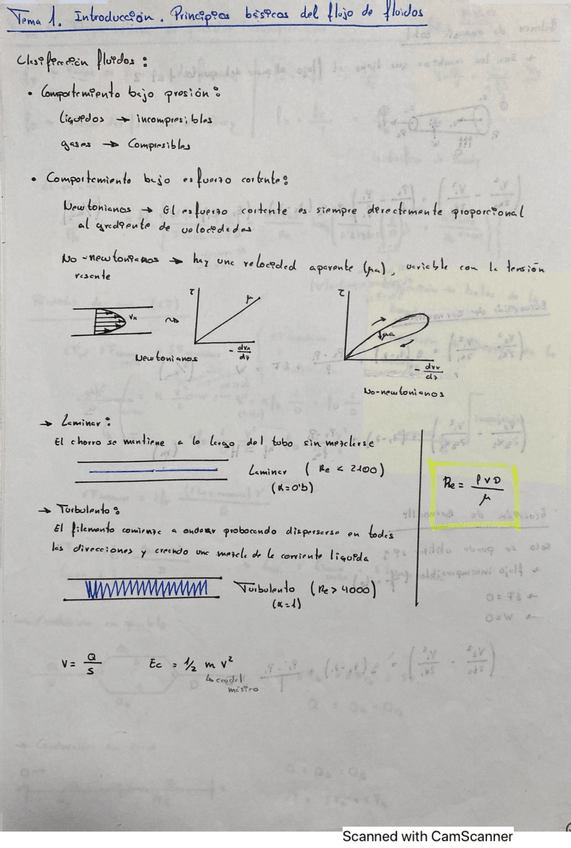 Tema 1. Introducción. Principios básicos del flujo de fluidos
Clasificación fluidos:
• Comportamiento bajo presión:
Líquidos → incompresibles
gases → Compresibles
• Comportamiento bajo esfuerzo cortante:
Newtonianos → El esfuerzo cortante es siempre directamente proporcional
al gradiente de velocidades
No-newtonianos → hay una velocidad aparente (μa), variable con la tensión
τ
Vx
μ
- dvx/dy
Newtonianos
τ
μa
- dvx/dy
No-newtonianos
→ Laminar:
El chorro se mantiene a lo largo del tubo sin mezclarse
Laminar (Re < 2100)
(α=0'5)
Re = ρ v D / μ
→ Turbulento:
El filamento comienza a ondear probocando dispersarse en todas
las direcciones y creando una mezcla de la corriente líquida
Turbulento (Re > 4000)
(α=1)
V = Q/S
Ec = 1/2 m v²
↳ caudal
másico
Scanned with CamScanner